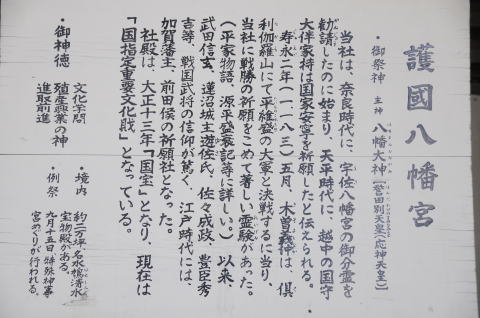 護國八幡宮
・御祭神 主神 八幡大神[誉田別天皇(応神天皇)]
当社は、奈良時代に、宇佐八幡宮の御分霊を
勧請したのに始まり、天平時代に、越中の国守
大伴家持は国家安寧を祈願したと伝えられる。
寿永二年(一一八三)五月、木曽義仲は、倶
利伽羅山にて平維盛の大軍と決戦するに当り、
当社に戦勝の祈願をこめて著しい霊験があった。
(平家物語、源平盛衰記等に詳しい。)以来、
武田信玄、蓮沼城主遊佐氏、佐々成政、豊臣秀
吉等、戦国武将の信仰が篤く、江戸時代には、
加賀藩主、前田侯の祈願社となった。
社殿は、大正十三年「国宝」となり、現在は
「国指定重要文化財」となっている。
・御神徳
文化学問
殖産興業の神
進取前進
・境内 約二万坪・名水鳩清水
宝物殿がある。
・例祭 九月十五日特殊神事
宮めぐりが行われる。